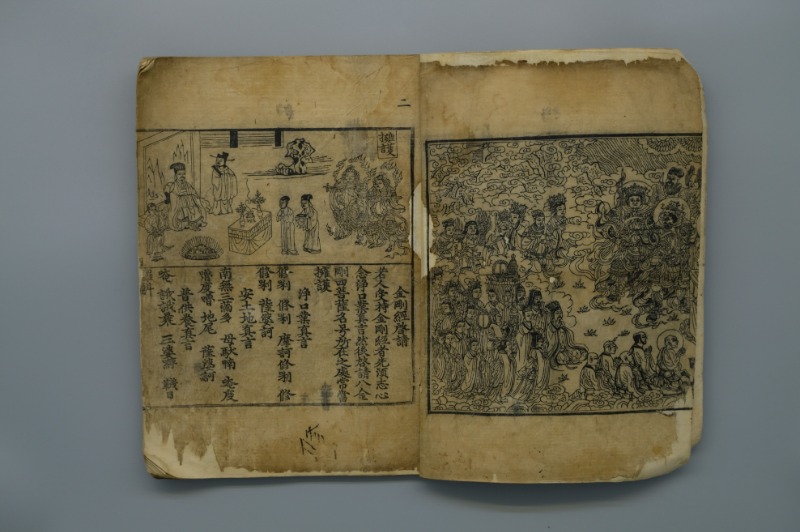 二
擁護
金剛經啓請
若人受持金剛經者先須志心
念淨口業真言然後啓請八金
剛四菩薩名号所在之處常當
擁護
淨口業真言
修利 修利 摩訶修利 修
修利 薩婆訶
安土地真言
南無三滿多 母馱喃 唵度
嚕度嚕 地尾 薩婆訶
普供養真言
唵 誐誐曩 三婆嚩 韈日